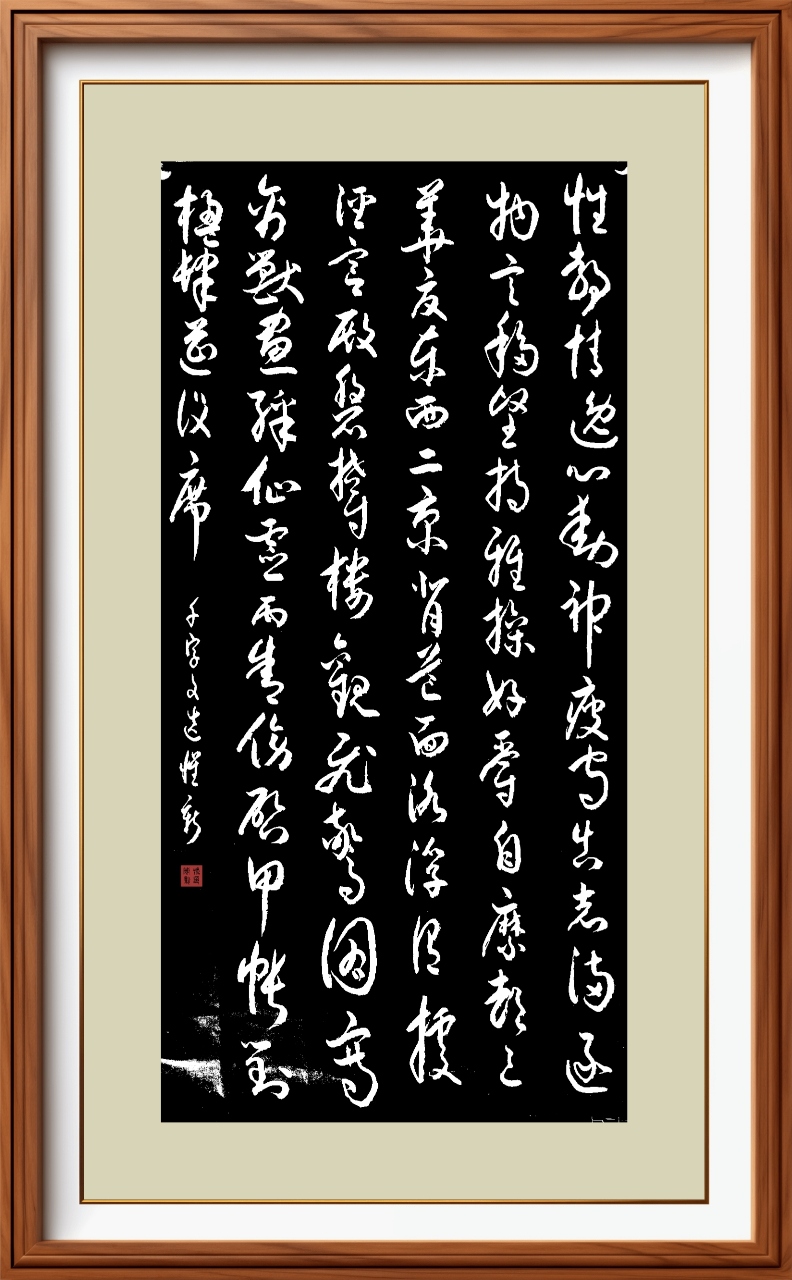 性靜情逸心動神疲守真志滿逐
物意移堅持雅操好爵自縻都邑
華夏東西二京背芒面洛浮渭據
涇宮殿盤鬱樓觀飛驚圖寫
禽獸畫綵仙靈丙舍傍啟甲帳對
楹肆筵設席
千字文选